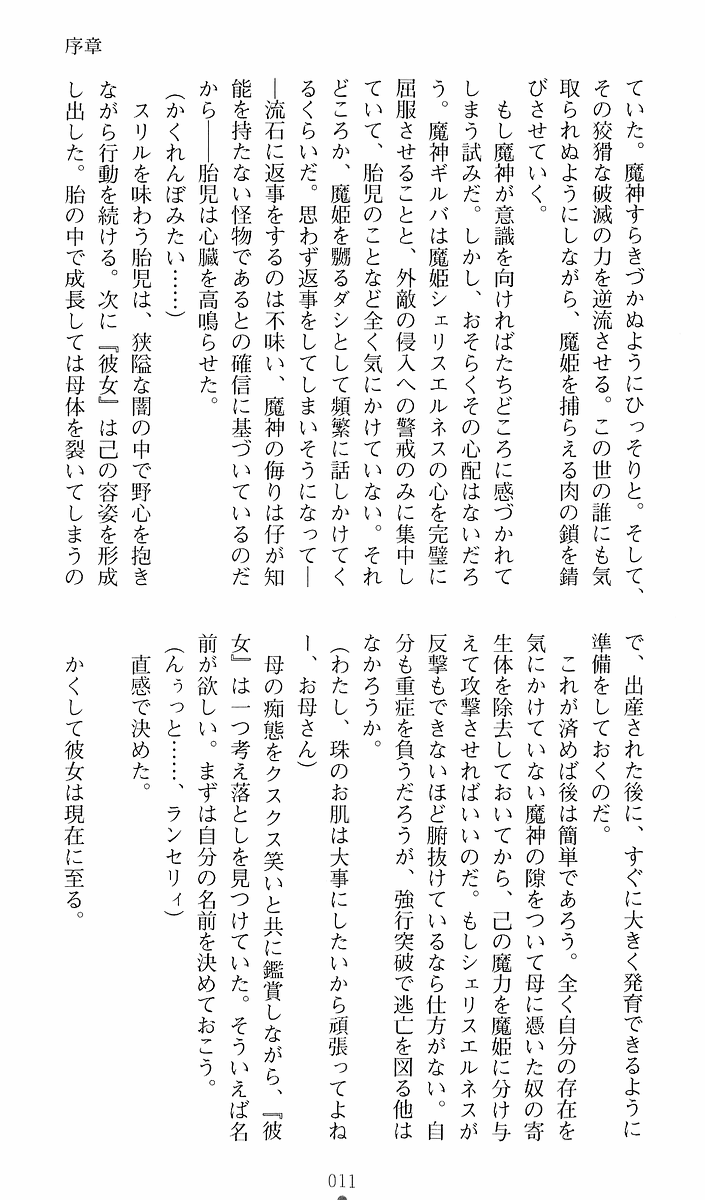 序章
ていた。魔神すらきづかぬようにひっそりと。そして、
その狡猾な破滅の力を逆流させる。この世の誰にも気
取られぬようにしながら、魔姫を捕らえる肉の鎖を錆
びさせていく。
もし魔神が意識を向ければたちどころに感づかれて
しまう試みだ。しかし、おそらくその心配はないだろ
う。魔神ギルバは魔姫シェリスエルネスの心を完璧に
屈服させることと、外敵の侵入への警戒のみに集中し
ていて、胎児のことなど全く気にかけていない。それ
どころか、魔姫を嬲るダシとして頻繁に話しかけてく
るくらいだ。思わず返事をしてしまいそうになって―
―流石に返事をするのは不味い、魔神の侮りは仔が知
能を持たない怪物であるとの確信に基づいているのだ
から――胎児は心臓を高鳴らせた。
(かくれんぼみたい……)
スリルを味わう胎児は、狭隘な闇の中で野心を抱き
ながら行動を続ける。次に『彼女』は己の容姿を形成
し出した。胎の中で成長しては母体を裂いてしまうの
で、出産された後に、すぐに大きく発育できるように
準備をしておくのだ。
これが済めば後は簡単であろう。全く自分の存在を
気にかけていない魔神の隙をついて母に憑いた奴の寄
生体を除去しておいてから、己の魔力を魔姫に分け与
えて攻撃させればいいのだ。もしシェリスエルネスが
反撃もできないほど腑抜けているなら仕方がない。自
分も重症を負うだろうが、強行突破で逃亡を図る他は
なかろうか。
(わたし、珠のお肌は大事にしたいから頑張ってよね
ー、お母さん)
母の痴態をクスクス笑いと共に鑑賞しながら、『彼
女』は一つ考え落としを見つけていた。そういえば名
前が欲しい。まずは自分の名前を決めておこう。
(んぅっと……、ランセリィ)
直感で決めた。
かくして彼女は現在に至る。
011